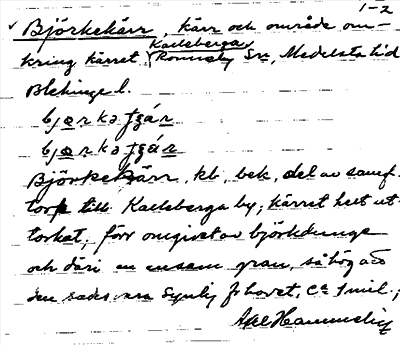 1-2
Björkekärr, kärr och område om-
Karlsberga
kring kärret, Ronneby Sn, Medelsta hd
Blekinge l.
Björkekärr, kb, bek, del av samf.
torp till Karlsberga by; kärret helt ut-
torkat; förr omgivet av björkdunge
och däri en ensam gran, så hög att
den sades vara synlig fr havet, ca 1 mil.;
Axel Hammelig